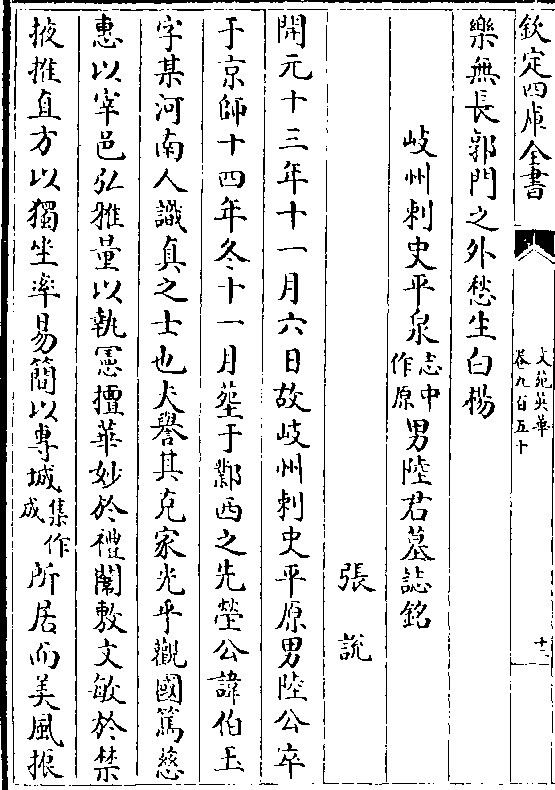 欽定四庫全書
文苑英華
卷九百五十
十二
樂無長郭門之外愁生白楊
岐州刺史平泉志中作原男陸君墓誌銘
張說
開元十三年十一月六日故岐州刺史平原男陸公卒
于京師十四年冬十一月葬于鄴西之先塋公諱伯玉
字某河南人識真之士也夫譽其克家光乎觀國篤慈
惠以宰邑弘雅量以執憲擅華妙於禮闈敷文敏於禁
掖推直方以獨坐率易簡以專城集作成所居而美風振